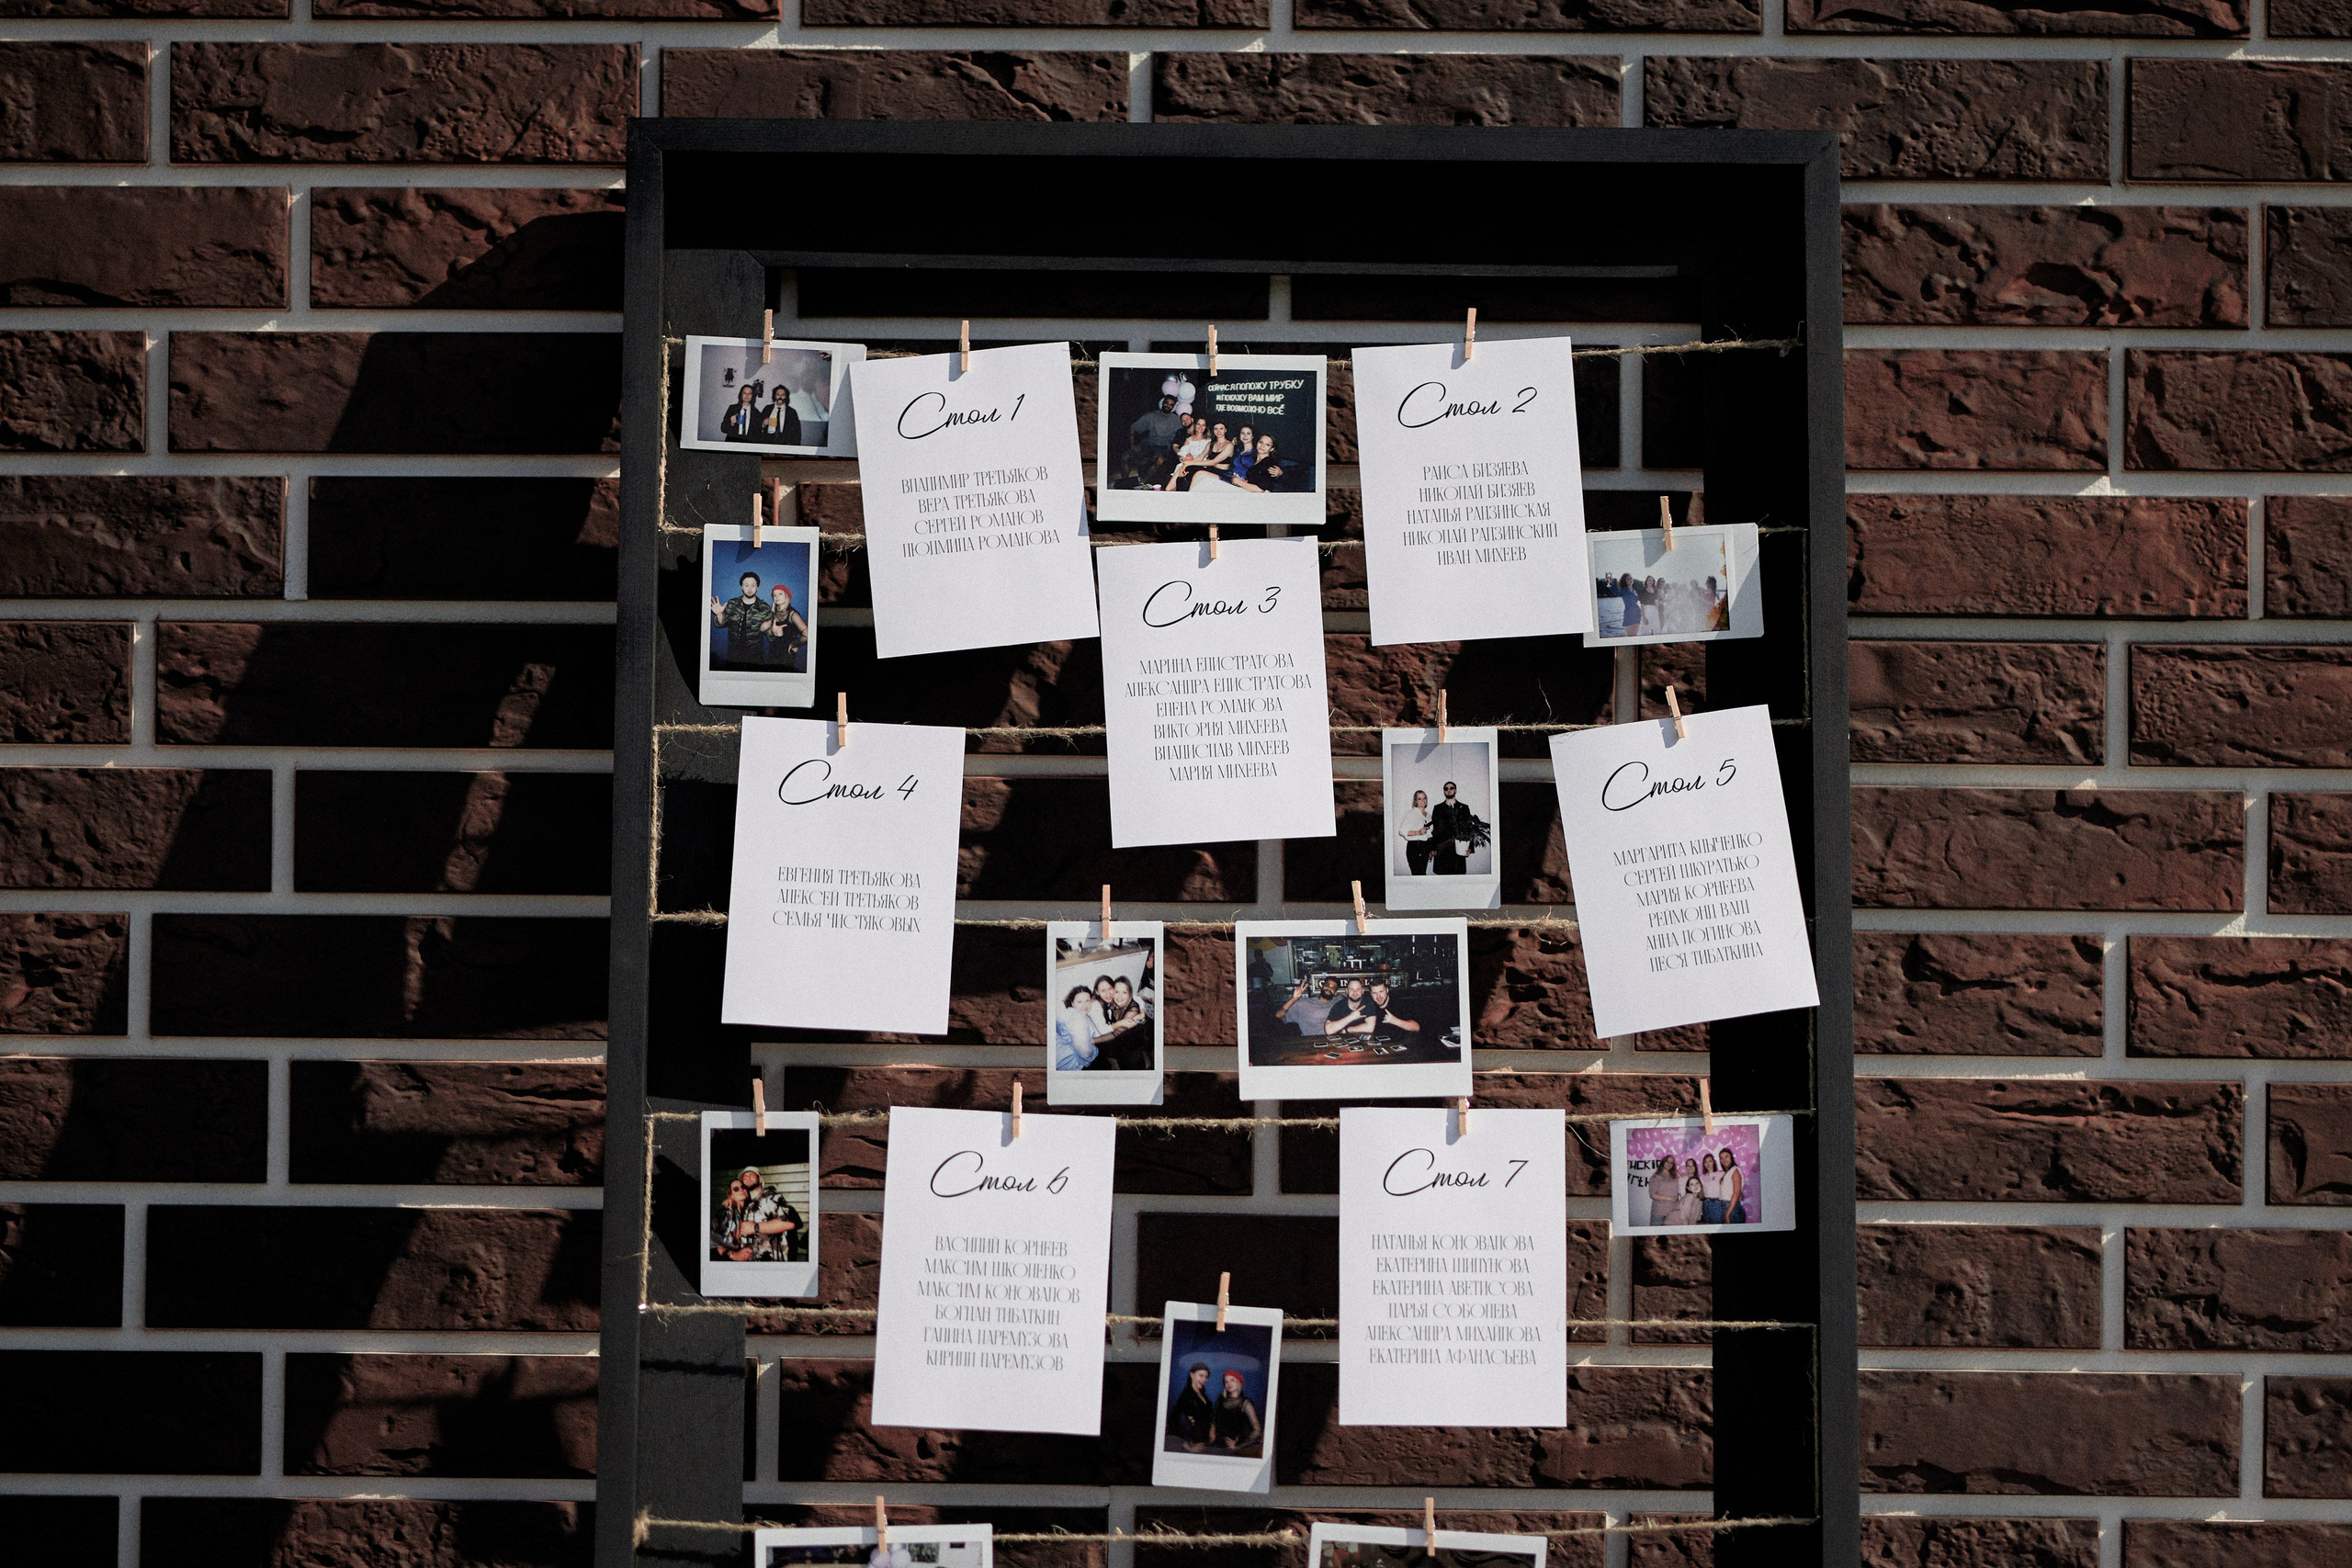 Стол 1
ВЛАДИМИР ТРЕТЬЯКОВ
ВЕРА ТРЕТЬЯКОВА
СЕРГЕЙ РОМАНОВ
ЛЮДМИЛА РОМАНОВА
СЕЙЧАС Я ПОЛОЖУ ТРУБКУ
И ПОКАЖУ ВАМ МИР
ГДЕ ВОЗМОЖНО ВСЁ
Стол 2
РАИСА БИЗЯЕВА
НИКОЛАЙ БИЗЯЕВ
НАТАЛЬЯ РАДЗИНСКАЯ
НИКОЛАЙ РАДЗИНСКИЙ
ИВАН МИХЕЕВ
Стол 3
МАРИНА ЕЛИСТРАТОВА
АЛЕКСАНДРА ЕЛИСТРАТОВА
ЕЛЕНА РОМАНОВА
ВИКТОРИЯ МИХЕЕВА
ВЛАДИСЛАВ МИХЕЕВ
МАРИЯ МИХЕЕВА
Стол 4
ЕВГЕНИЯ ТРЕТЬЯКОВА
АЛЕКСЕЙ ТРЕТЬЯКОВ
СЕМЬЯ ЧИСТЯКОВЫХ
Стол 5
МАРГАРИТА КЛЫЧЕНКО
СЕРГЕЙ ШКУРАТЬКО
МАРИЯ КОРНЕЕВА
РЕЙМОНД
АННА ЛОГИНОВА
ЛЕСЯ ТИБАТКИНА
Стол 6
ВАСИЛИЙ КОРНЕЕВ
МАКСИМ ШКОЛЕНКО
МАКСИМ КОНОВАЛОВ
БОГДАН ТИБАТКИН
ГАЛИНА ЦАРЕМУЗОВА
КИРИЛЛ ЦАРЕМУЗОВ
Стол 7
НАТАЛЬЯ КОНОВАЛОВА
ЕКАТЕРИНА ШИПУНОВА
ЕКАТЕРИНА АВЕТИСОВА
ДАРЬЯ СОБОЛЕВА
АЛЕКСАНДРА МИХАЙЛОВА
ЕКАТЕРИНА АФАНАСЬЕВА